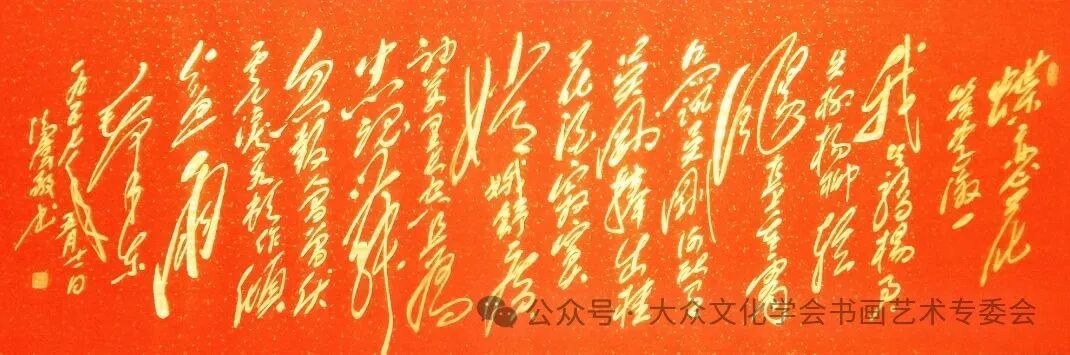 蝶恋花
答李淑一
我失骄杨君
失柳杨柳轻
飏直上重霄
九问讯吴刚何所有
吴刚捧出桂
花酒寂寞
嫦娥舒广
袖万里长空且为
忠魂舞
忽报人间曾伏
虎泪飞顿作倾
盆雨
毛泽东
一九五七年五月十一日
公众号·大众文化学会书画艺术专委会